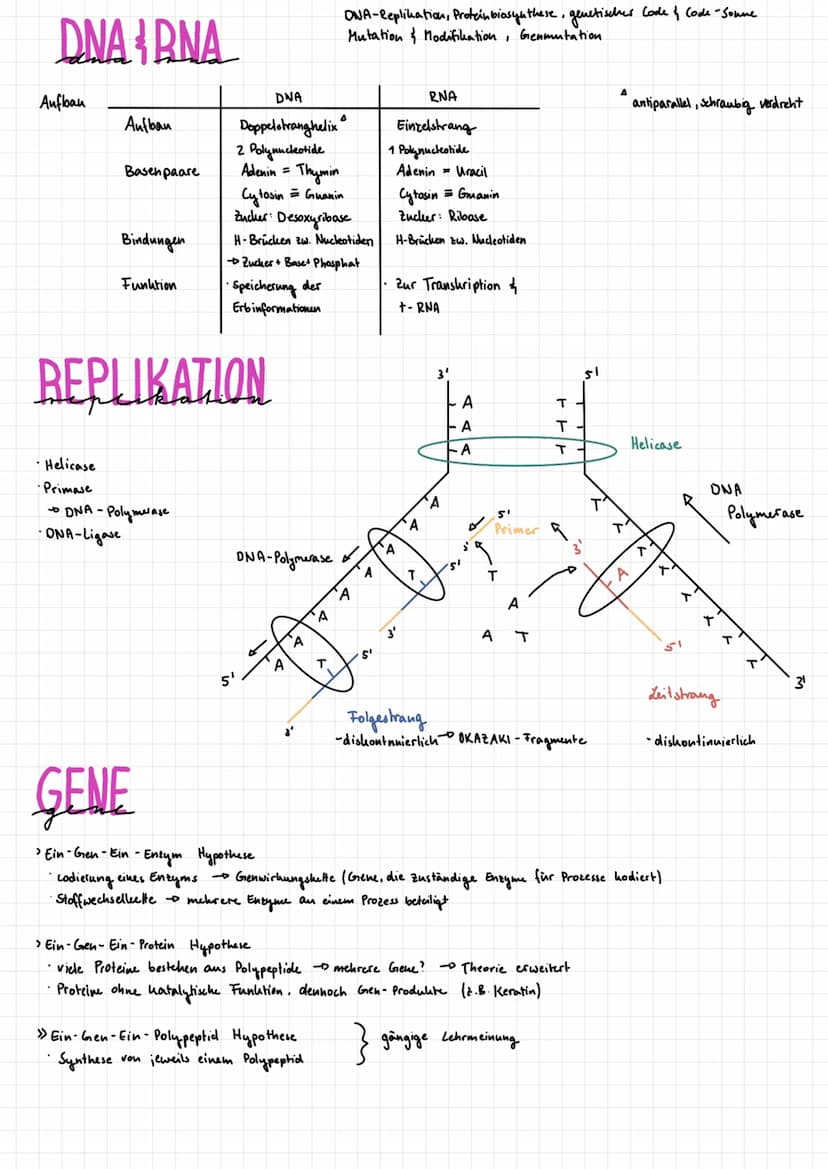 DNA-Replikation, Proteinbiosynthese, genetischer Code & Code-Sonne
DNA & RNA
dna & rna
Mutation & Modifikation, Genmutation
Aufbau
DNA
RNA
△ antiparallel, schraubig verdreht
Aufbau
Doppelstranghelix △
Einzelstrang
2 Polynucleotide
1 Polynucleotide
Basenpaare
Adenin = Thymin
Adenin = Uracil
Cytosin ≡ Guanin
Cytosin ≡ Guanin
Zucker: Desoxyribase
Zucker: Ribase
Bindungen
H-Brücken zw. Nucleotiden
H-Brücken zw. Nucleotiden
→ Zucker + Base + Phosphat
Funktion
· Speicherung der
· Zur Transkription &
Erbinformationen
t-RNA
REPLIKATION
replikation
3'
5'
A
T
A
T
A
T
Helicase
· Helicase
· Primase
→ DNA-Polymerase
· DNA-Ligase
DNA
Polymerase
A
T
A
T
5'
Primer
3'
3'
DNA-Polymerase
A
T
5'
T
T
A
T
A
T
A
T
A
A
T
3'
T
A
T
T
5'
A
T
5'
T
5'
3'
Leitstrang
3'
Folgestrang
- diskontinuierlich → OKAZAKI-Fragmente
- diskontinuierlich
GENE
gene
> Ein-Gen-Ein-Enzym Hypothese
· codierung eines Enzyms → Genwirkungskette (Gene, die zuständige Enzyme für Prozesse kodiert)
· Stoffwechselkette → mehrere Enzyme an einem Prozess beteiligt
> Ein-Gen-Ein-Protein Hypothese
· viele Proteine bestehen aus Polypeptide → mehrere Gene? → Theorie erweitert
· Proteine ohne katalytische Funktion, dennoch Gen-Produkte (z.B. Keratin)
>> Ein-Gen-Ein-Polypeptid Hypothese
} gängige Lehrmeinung
· Synthese von jeweils einem Polypeptid